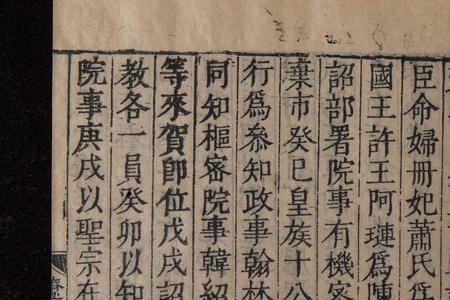 臣命婦冊妃蕭氏爲
國王許王阿璉爲陳
詔部署院事有機密
棄市癸巳皇族十公
行爲叅知政事翰林
同知樞密院事韓紹
等來賀卽位戊戌詔
教各一員癸卯以知
院事庚戌以聖宗在